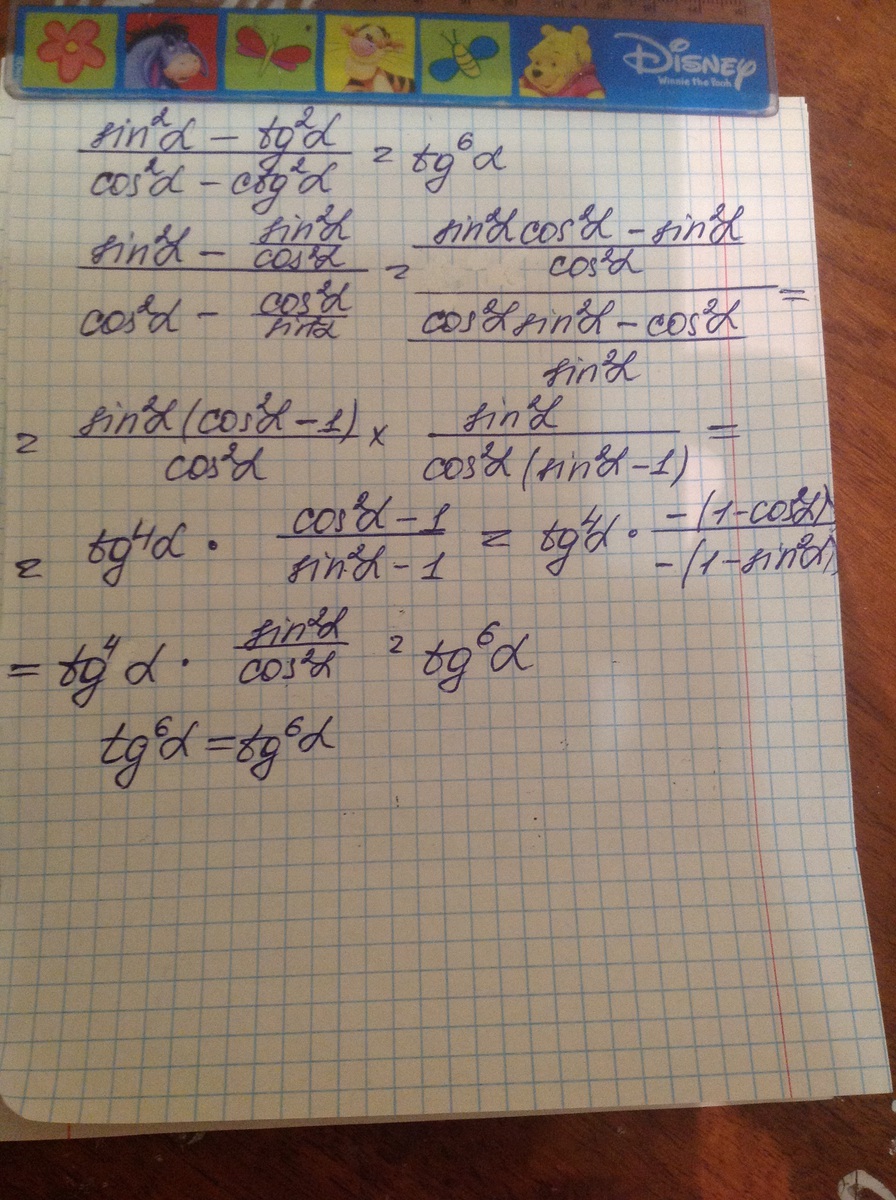 DISNEY
Winnie the Pooh
(sin²α − tg²α)/(cos²α − ctg²α) = tg⁶α
(sin²α − sin²α/cos²α)/(cos²α − cos²α/sin²α) = ((sin²α cos²α − sin²α)/cos²α)/((cos²α sin²α − cos²α)/sin²α) =
= (sin²α (cos²α − 1))/cos²α × sin²α/(cos²α (sin²α − 1)) =
= tg⁴α · (cos²α − 1)/(sin²α − 1) = tg⁴α · (−(1 − cos²α))/(−(1 − sin²α))
= tg⁴α · sin²α/cos²α = tg⁶α
tg⁶α = tg⁶α